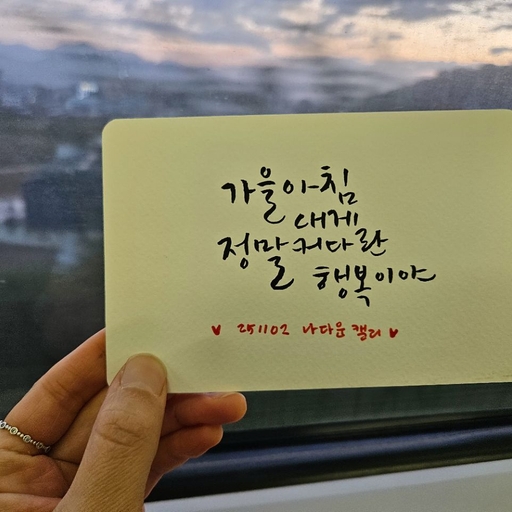 가을아침
내게
정말 커다란
행복이야
♥ 251102 나다운캘리 ♥